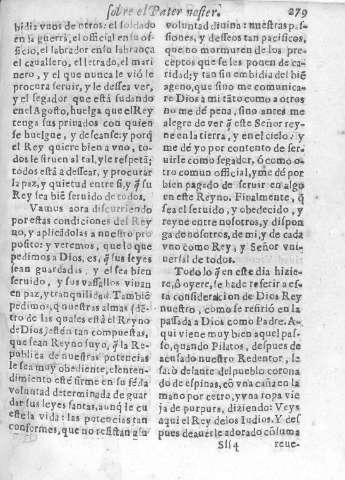 sobre el Pater noster. 279
bidia vnos de otros: el soldado
en la guerra, el oficial en su of-
ficio, el labrador en su labrança
el cauallero, el letrado, el mari-
nero, y el que nunca le vio le
procura seruir, y le dessea ver,
y el segador que está sudando
en el Agosto, huelga que el Rey
tenga sus priuados con quien
se huelgue, y descanse: porq̃
el Rey quiere bien a vno, to-
dos le siruen al tal, y le respetã;
todos está a dessear, y procurar
la paz, y quietud entre si, y q̃ su
Rey sea biẽ seruido de todos.
Vamos aora discurriendo
por estas condiciones del Rey
no, y aplicãdolas a nuestro pro
posito: y veremos, que lo que
pedimos a Dios, es, q̃ sus leyes
sean guardadas, y el sea bien
seruido, y sus vassallos viuan
en paz, y tranquilidad. Tambiẽ
pedimos, q̃ nuestras almas (dẽ-
tro de las quales está el Reyno
de Dios) estén tan compuestas,
que sean Reyno suyo, q̃ la Re-
publica de nuestras potencias
le sea muy obediente, el enten-
dimiento esté firme en su fé, la
voluntad determinada de guar
dar sus leyes santas, aunq̃ le cu
este la vida: las potencias tan
conformes, que no resistan a su
voluntad diuina: nuestras pas-
siones, y desseos tan pacificos,
que no murmuren de los pre-
ceptos que se les ponen de ca-
ridad; y tan sin embidia del biẽ
ageno, que sino me comunica-
re Dios a mi tãto como a otros
no me dé pena, sino antes me
alegre de ver q̃ este Señor rey-
ne en la tierra, y en el cielo: y
me dé yo por contento de ser-
uirle como segador, ó como o-
tro comun oficial, y me dé por
bien pagado de seruir en algo
en este Reyno. Finalmente, q̃
sea el seruido, y obedecido, y
reyne entre nosotros, y dispon
ga de nosotros, de mi, y de cada
vno como Rey, y Señor vni-
uersal de todos.
Todo lo q̃ en este dia hizie-
re, ô oyere, se ha de referir a es-
ta consideracion de Dios Rey
nuestro, como se refirió en la
passada a Dios como Padre. A-
qui viene muy bien aquel pas-
so, quando Pilatos, despues de
acusado nuestro Redentor, le
sacó delante del pueblo corona
do de espinas, cõ vna caña en la
mano por cetro, y vna ropa vie
ja de purpura, diziendo: Veys
aqui el Rey de los Iudios. Y des
pues de auerle adorado cõ suma
Sss4 reue-